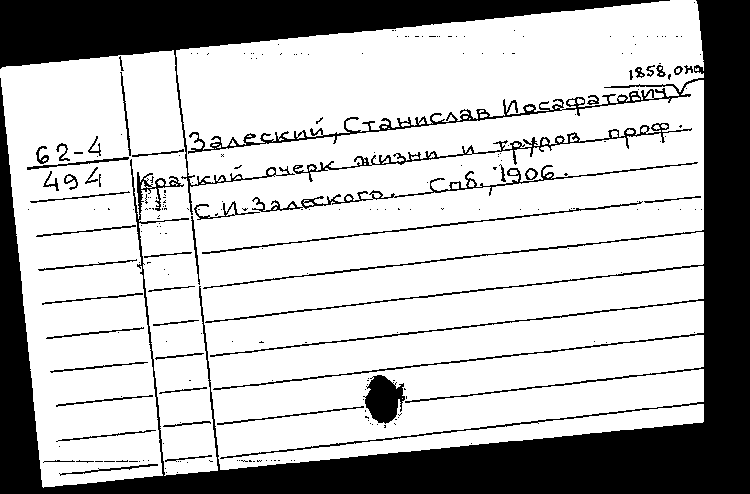 1858, о нем
62-4
494
Залеский, Станислав Иосафатович,
Краткий очерк жизни и трудов проф.
С.И. Залеского. Спб., 1906.